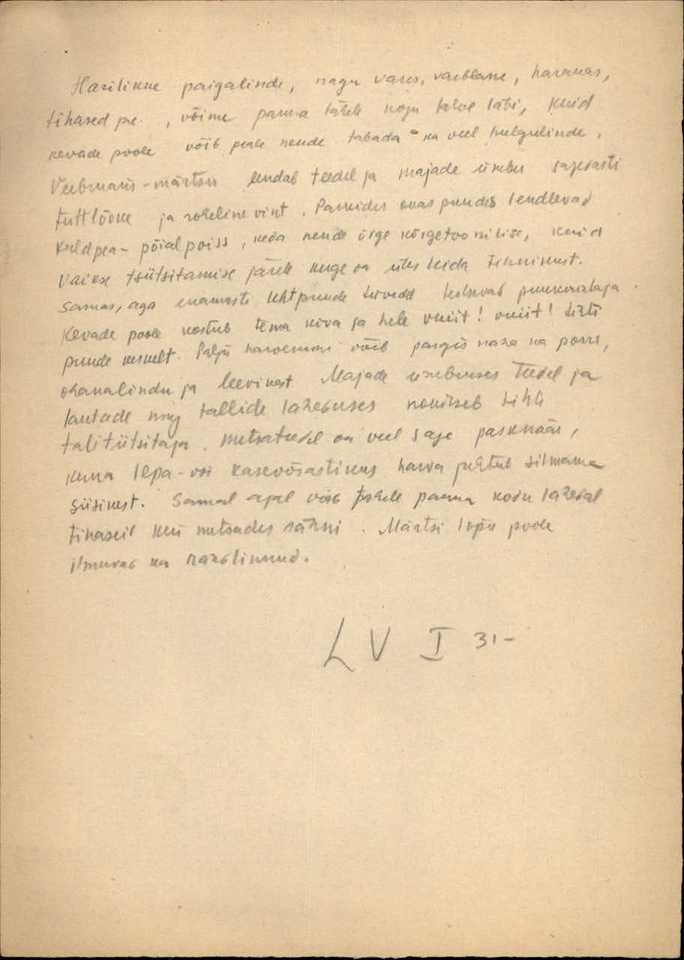 Harilikke paigalinde, nagu vares, varblane, harakas,
tihased jne., võime panna tähele kogu talve läbi, kuid
kevade poole võib peale nende tabada ka veel hulgulinde.
Veebruaris-märtsis lendab teedel ja majade ümbrus sagedasti
tuttlõoke ja roheline vint. Parkides okaspuudes lendlevad
kuldpea-pöialpoiss, keda nende õige kõrgetoonilise, kuid
vaikse tsütsitamise järele kuge on üles leida
Samas, aga enamasti lehtpuude tüvedel puukoristaja.
Kevade poole kostub tema kõva ja hele vuiit! vuiit! tihti
puude keskelt. Palju harvemini võib pargis näha ka porri,
ohakalindu ja leevikest Majade ümbruses teedel ja
lautade ning tallide läheduses nokitseb tihti
talitütsitaja. Metsateedel on veel sage pasknäär,
kuna lepa- või kasevõsastikus harva juhtub silmama
siisikest. Samal ajal võib tähele panna kodu lähedal
tihaseid kui metsades rähni. Märtsi lõpu poole
ilmuvad ka rändlinnud.
LV I 31-